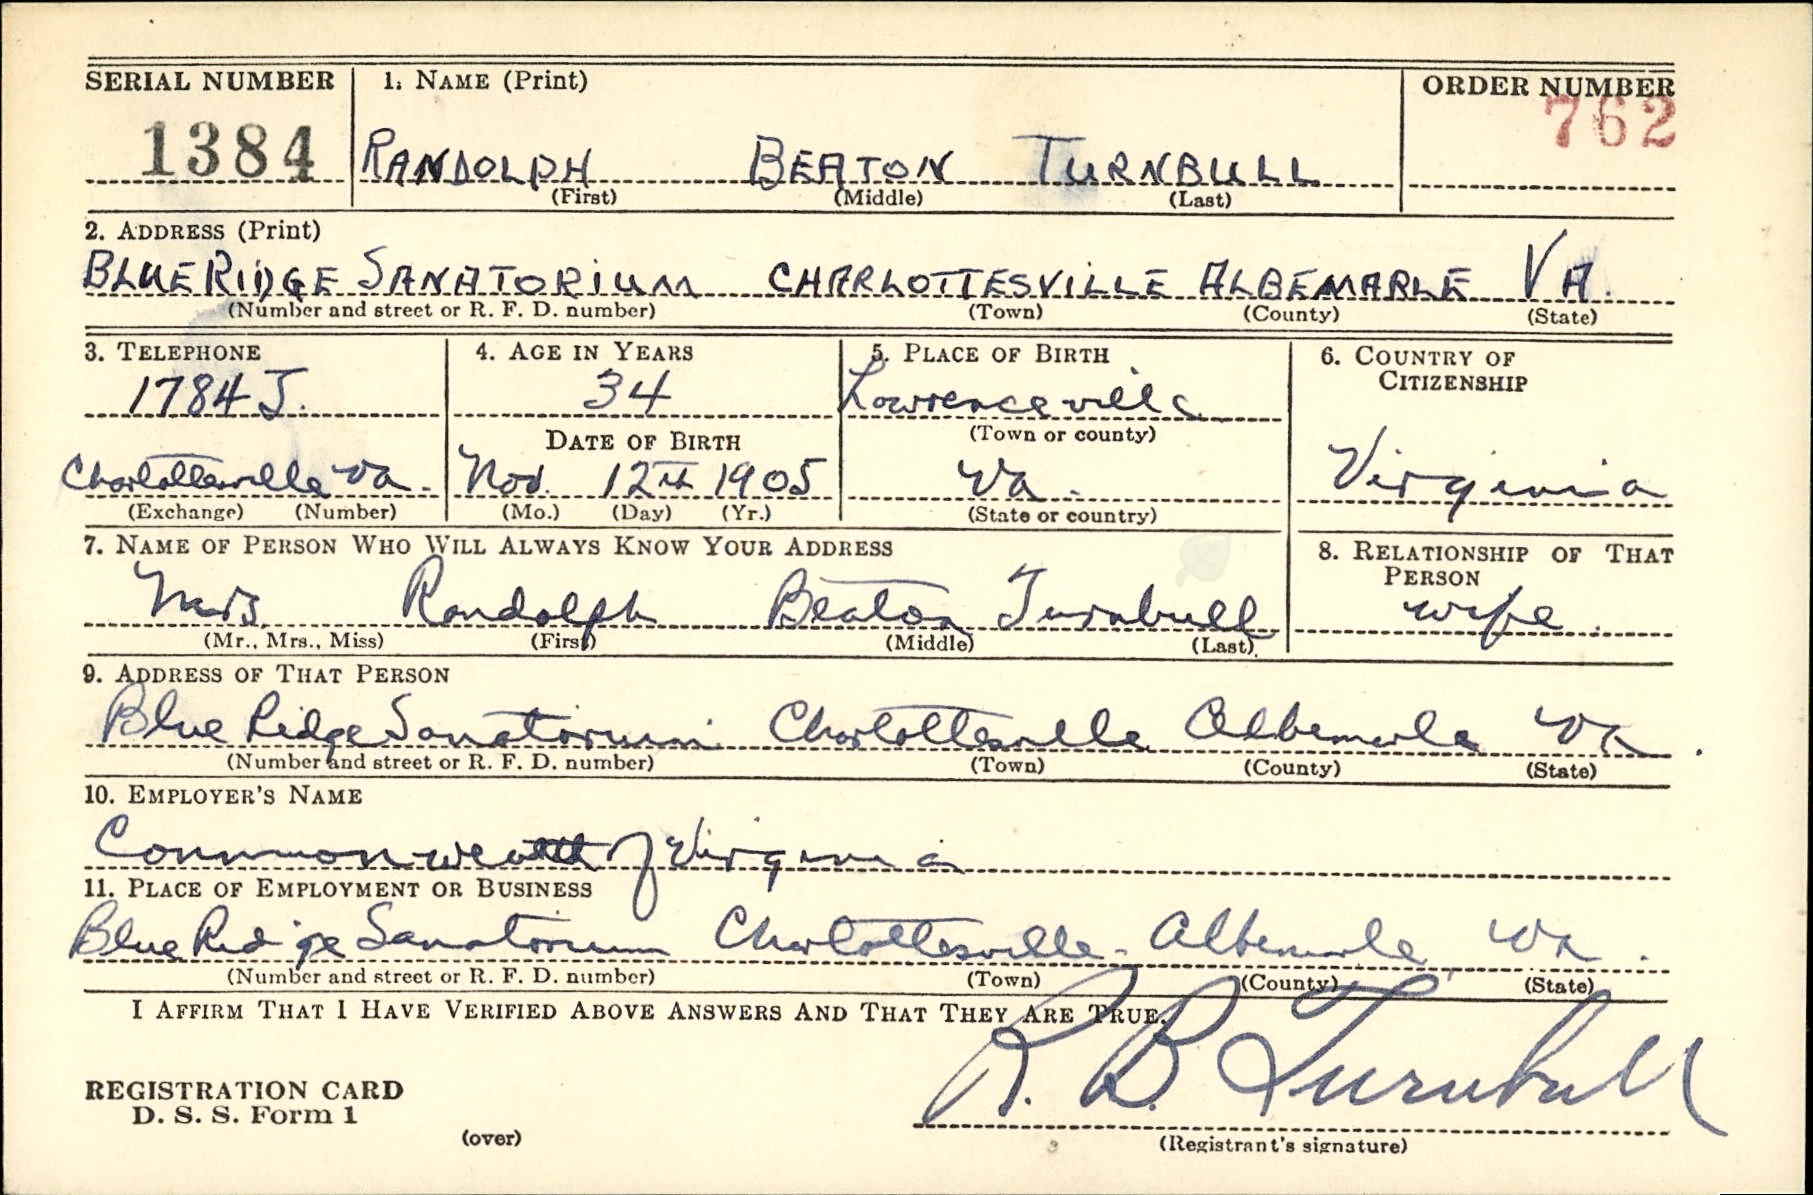 SERIAL NUMBER 1. NAME (Print) ORDER NUMBER
1384 RANDOLPH BEATON TURNBULL 762
(First) (Middle) (Last)
2. ADDRESS (Print)
BLUE RIDGE SANATORIUM CHARLOTTESVILLE ALBEMARLE VA.
(Number and street or R. F. D. number) (Town) (County) (State)
3. TELEPHONE 4. AGE IN YEARS 5. PLACE OF BIRTH 6. COUNTRY OF CITIZENSHIP
1784 J. 34 Lawrenceville
DATE OF BIRTH (Town or county)
Charlottesville Va. Nov. 12th 1905 Va. Virginia
(Exchange) (Number) (Mo.) (Day) (Yr.) (State or country)
7. NAME OF PERSON WHO WILL ALWAYS KNOW YOUR ADDRESS 8. RELATIONSHIP OF THAT PERSON
Mrs Randolph Beaton Turnbull wife.
(Mr., Mrs., Miss) (First) (Middle) (Last)
9. ADDRESS OF THAT PERSON
Blue Ridge Sanatorium Charlottesville Albemarle Va.
(Number and street or R. F. D. number) (Town) (County) (State)
10. EMPLOYER'S NAME
Commonwealth of Virginia
11. PLACE OF EMPLOYMENT OR BUSINESS
Blue Ridge Sanatorium Charlottesville - Albemarle Va.
(Number and street or R. F. D. number) (Town) (County) (State)
I AFFIRM THAT I HAVE VERIFIED ABOVE ANSWERS AND THAT THEY ARE TRUE.
REGISTRATION CARD R. B. Turnbull
D. S. S. Form 1
(over) (Registrant's signature)